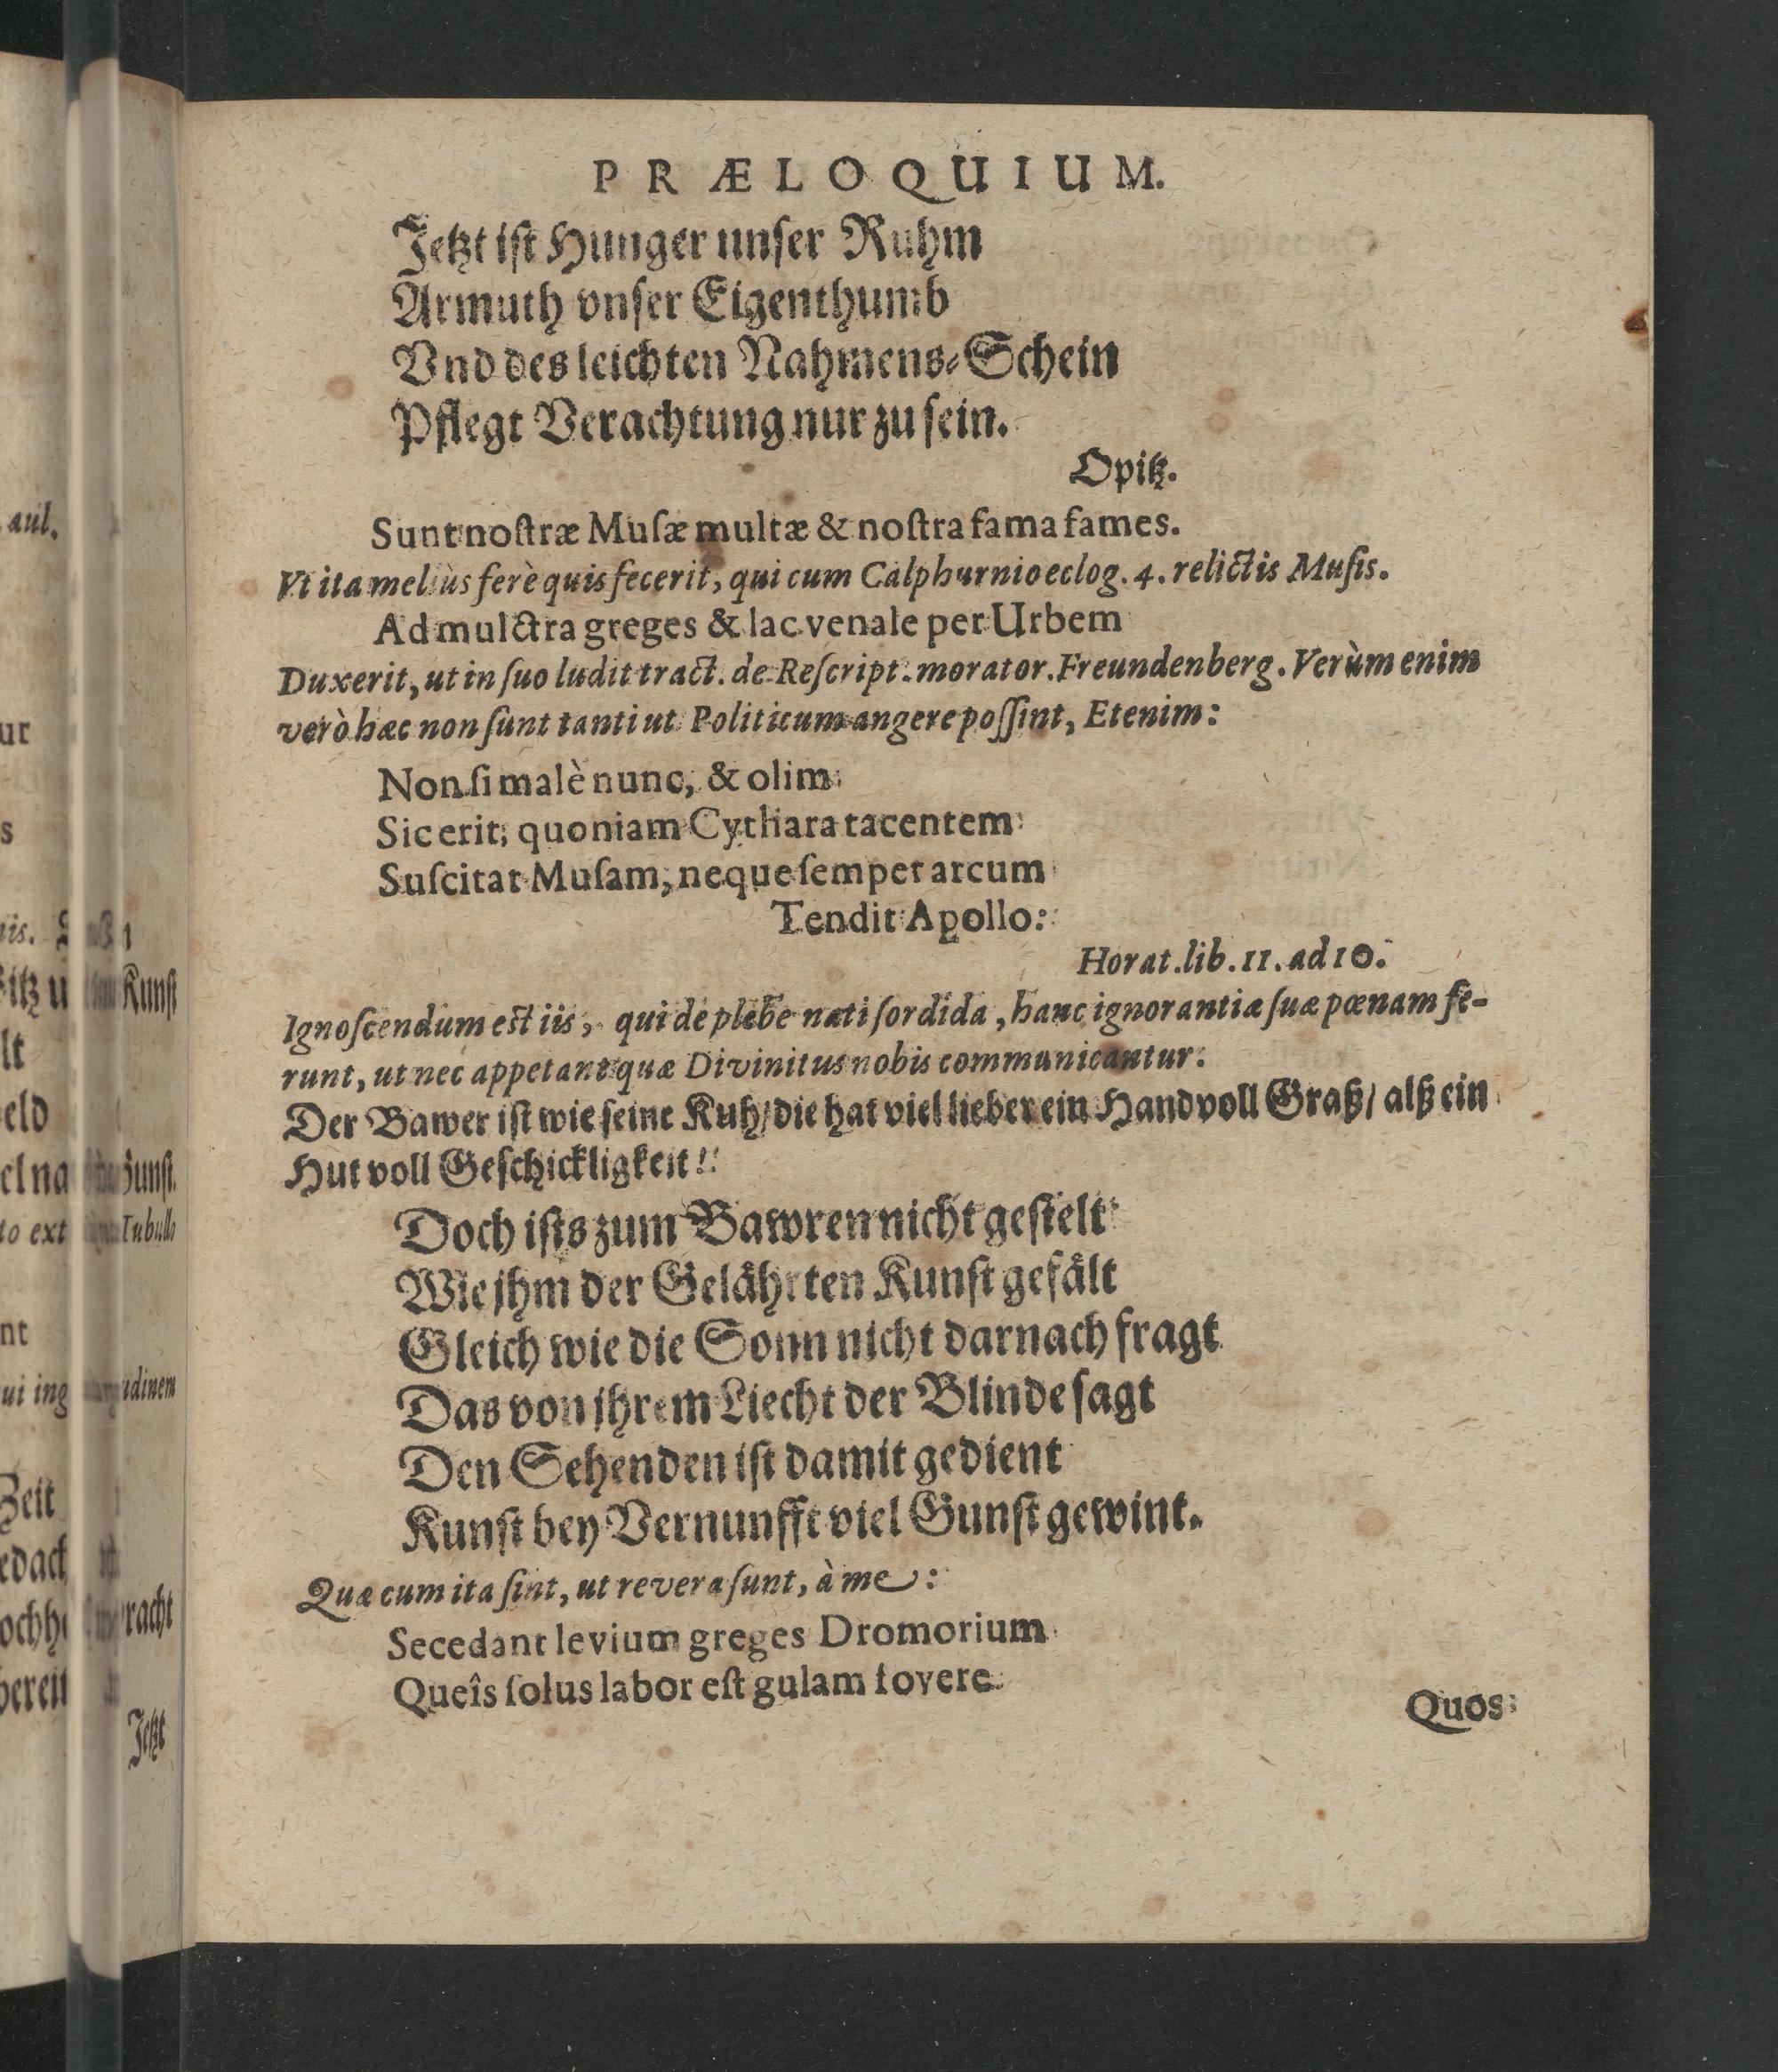 PRÆLOQUIUM.
Jetzt iſt Hunger unſer Ruhm
Armuth vnſer Eigenthumb
Vnd des leichten Nahmens-Schein
Pflegt Verachtung nur zu ſein.
Opitz.
Sunt noſtræ Muſæ multæ & noſtra fama fames.
Vt ita meliùs ferè quis fecerit, qui cum Calphurnio eclog. 4. relictis Muſis.
Ad mulctra greges & lac venale per Urbem
Duxerit, ut in ſuo ludit tract. de Reſcript. morator. Freundenberg. Verùm enim
verò hæc non ſunt tanti ut Politicum angere poſſint, Etenim:
Non ſi malè nunc, & olim
Sic erit, quoniam Cythara tacentem
Suſcitat Muſam, neque ſemper arcum
Tendit Apollo:
Horat. lib. 11. ad 10.
Ignoſcendum est iis, qui de plebe nati ſordida, hanc ignorantiæ ſuæ pœnam fe-
runt, ut nec appetant quæ Divinitus nobis communicantur.
Der Bawer iſt wie ſeine Kuh/ die hat viel lieber ein Hand voll Graß/ alß ein
Hut voll Geſchickligkeit!!
Doch iſts zum Bawren nicht geſtelt
Wie jhm der Gelährten Kunſt gefält
Gleich wie die Sonn nicht darnach fragt
Das von jhrem Liecht der Blinde ſagt
Den Sehenden iſt damit gedient
Kunſt bey Vernunfft viel Gunſt gewint.
Quæ cum ita ſint, ut revera ſunt, à me:
Secedant levium greges Dromorium
Queîs ſolus labor eſt gulam fovere
Quos
aul.
ur
s
Kunſt
lt
eld
to ext
Tubullo
nt
ui ing
idinem
Zeit
racht
Jetzt